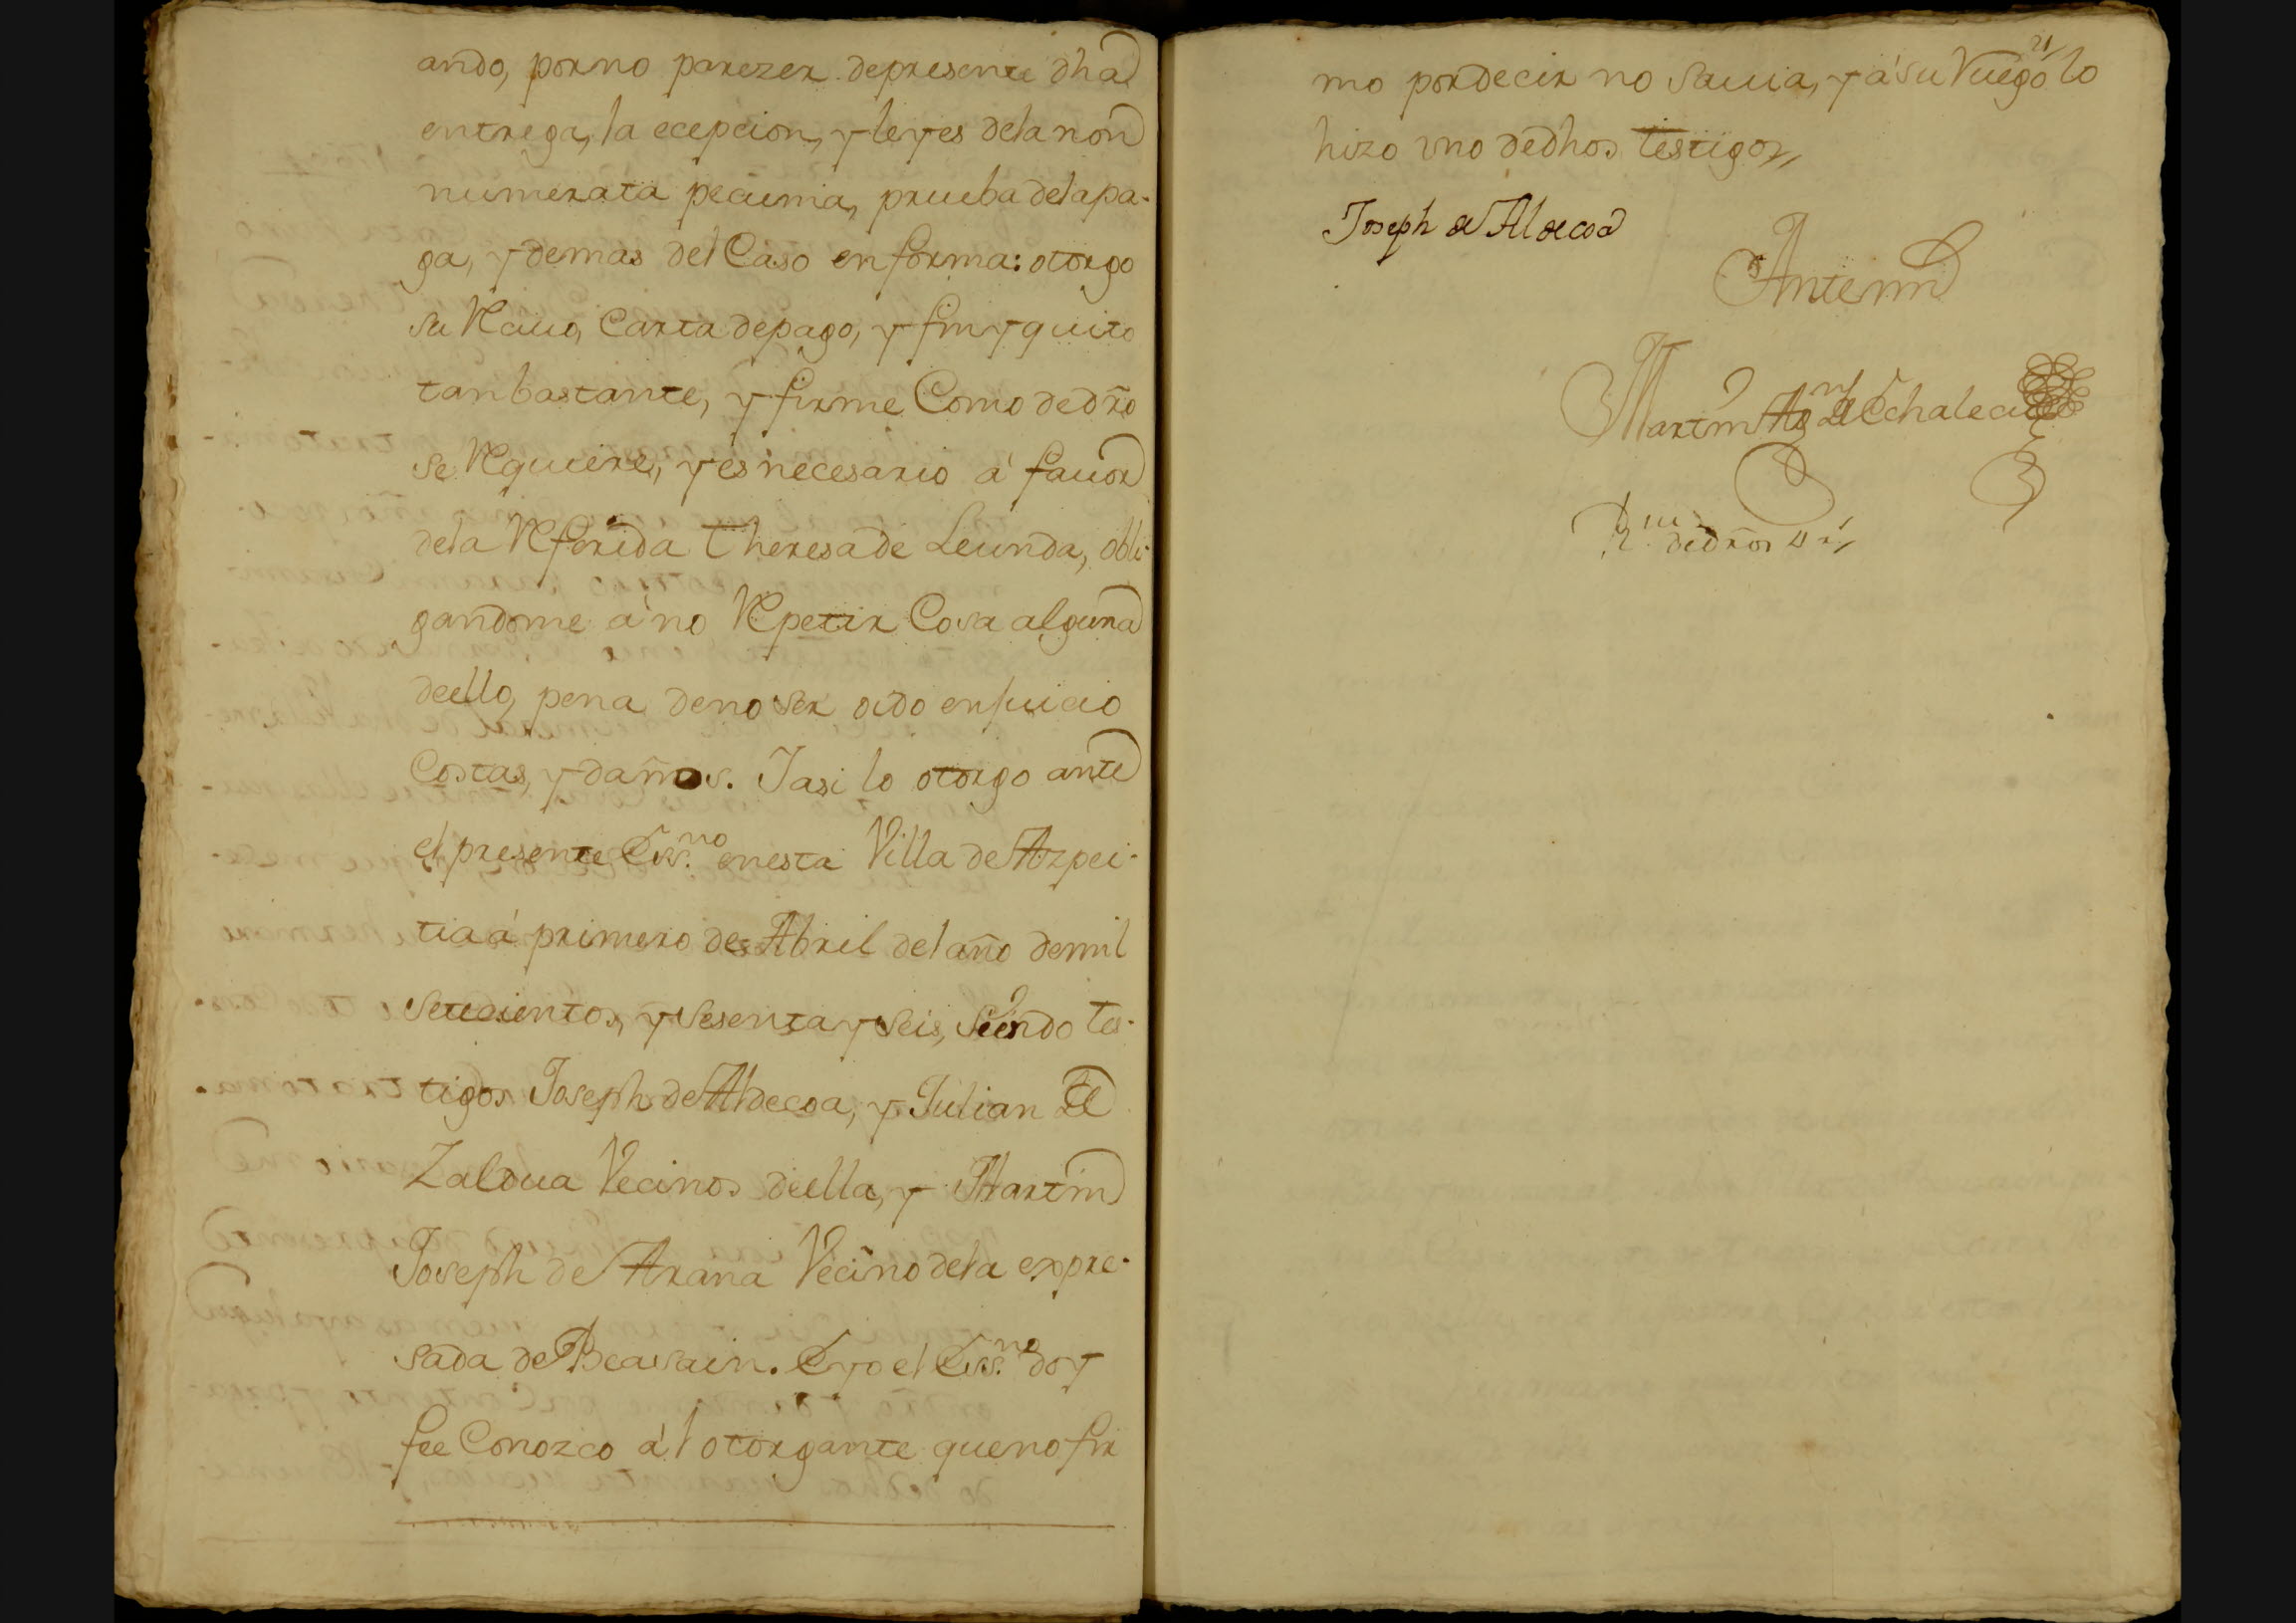 ando, por no parezer de presente dha
entrega, la ecepcion, y leyes dela non
numerata pecunia, prueba dela pa-
ga, y demas del Caso en forma: otorgo
su Reciuo, Carta de pago, y fin y quito
tan bastante, y firme Como de dro
se Requiere, y es necesario á fauor
dela Referida Theresa de Leunda, obli-
gandome á no Repetir Cosa alguna
deello, pena de no ser oido en juicio
Costas, y daños. Iasi lo otorgo ante
el presente Ess.no en esta Villa de Azpei-
tia á primero de Abril del año de mil
setecientos, y sesenta y seis, siendo tes-
tigos Joseph de Aldecoa, y Julian de
Zaldua Vecinos de ella, y Martin
Joseph de Arana Vecino dela expre-
sada de Beasain. E yo el Ess.no doy
fee Conozco ál otorgante que no fir
21
mo por decir no sauia, y á su Ruego lo
hizo vno de dhos testigos
Joseph de Aldecoa
Antemi
Martin de Echalecu
de dros